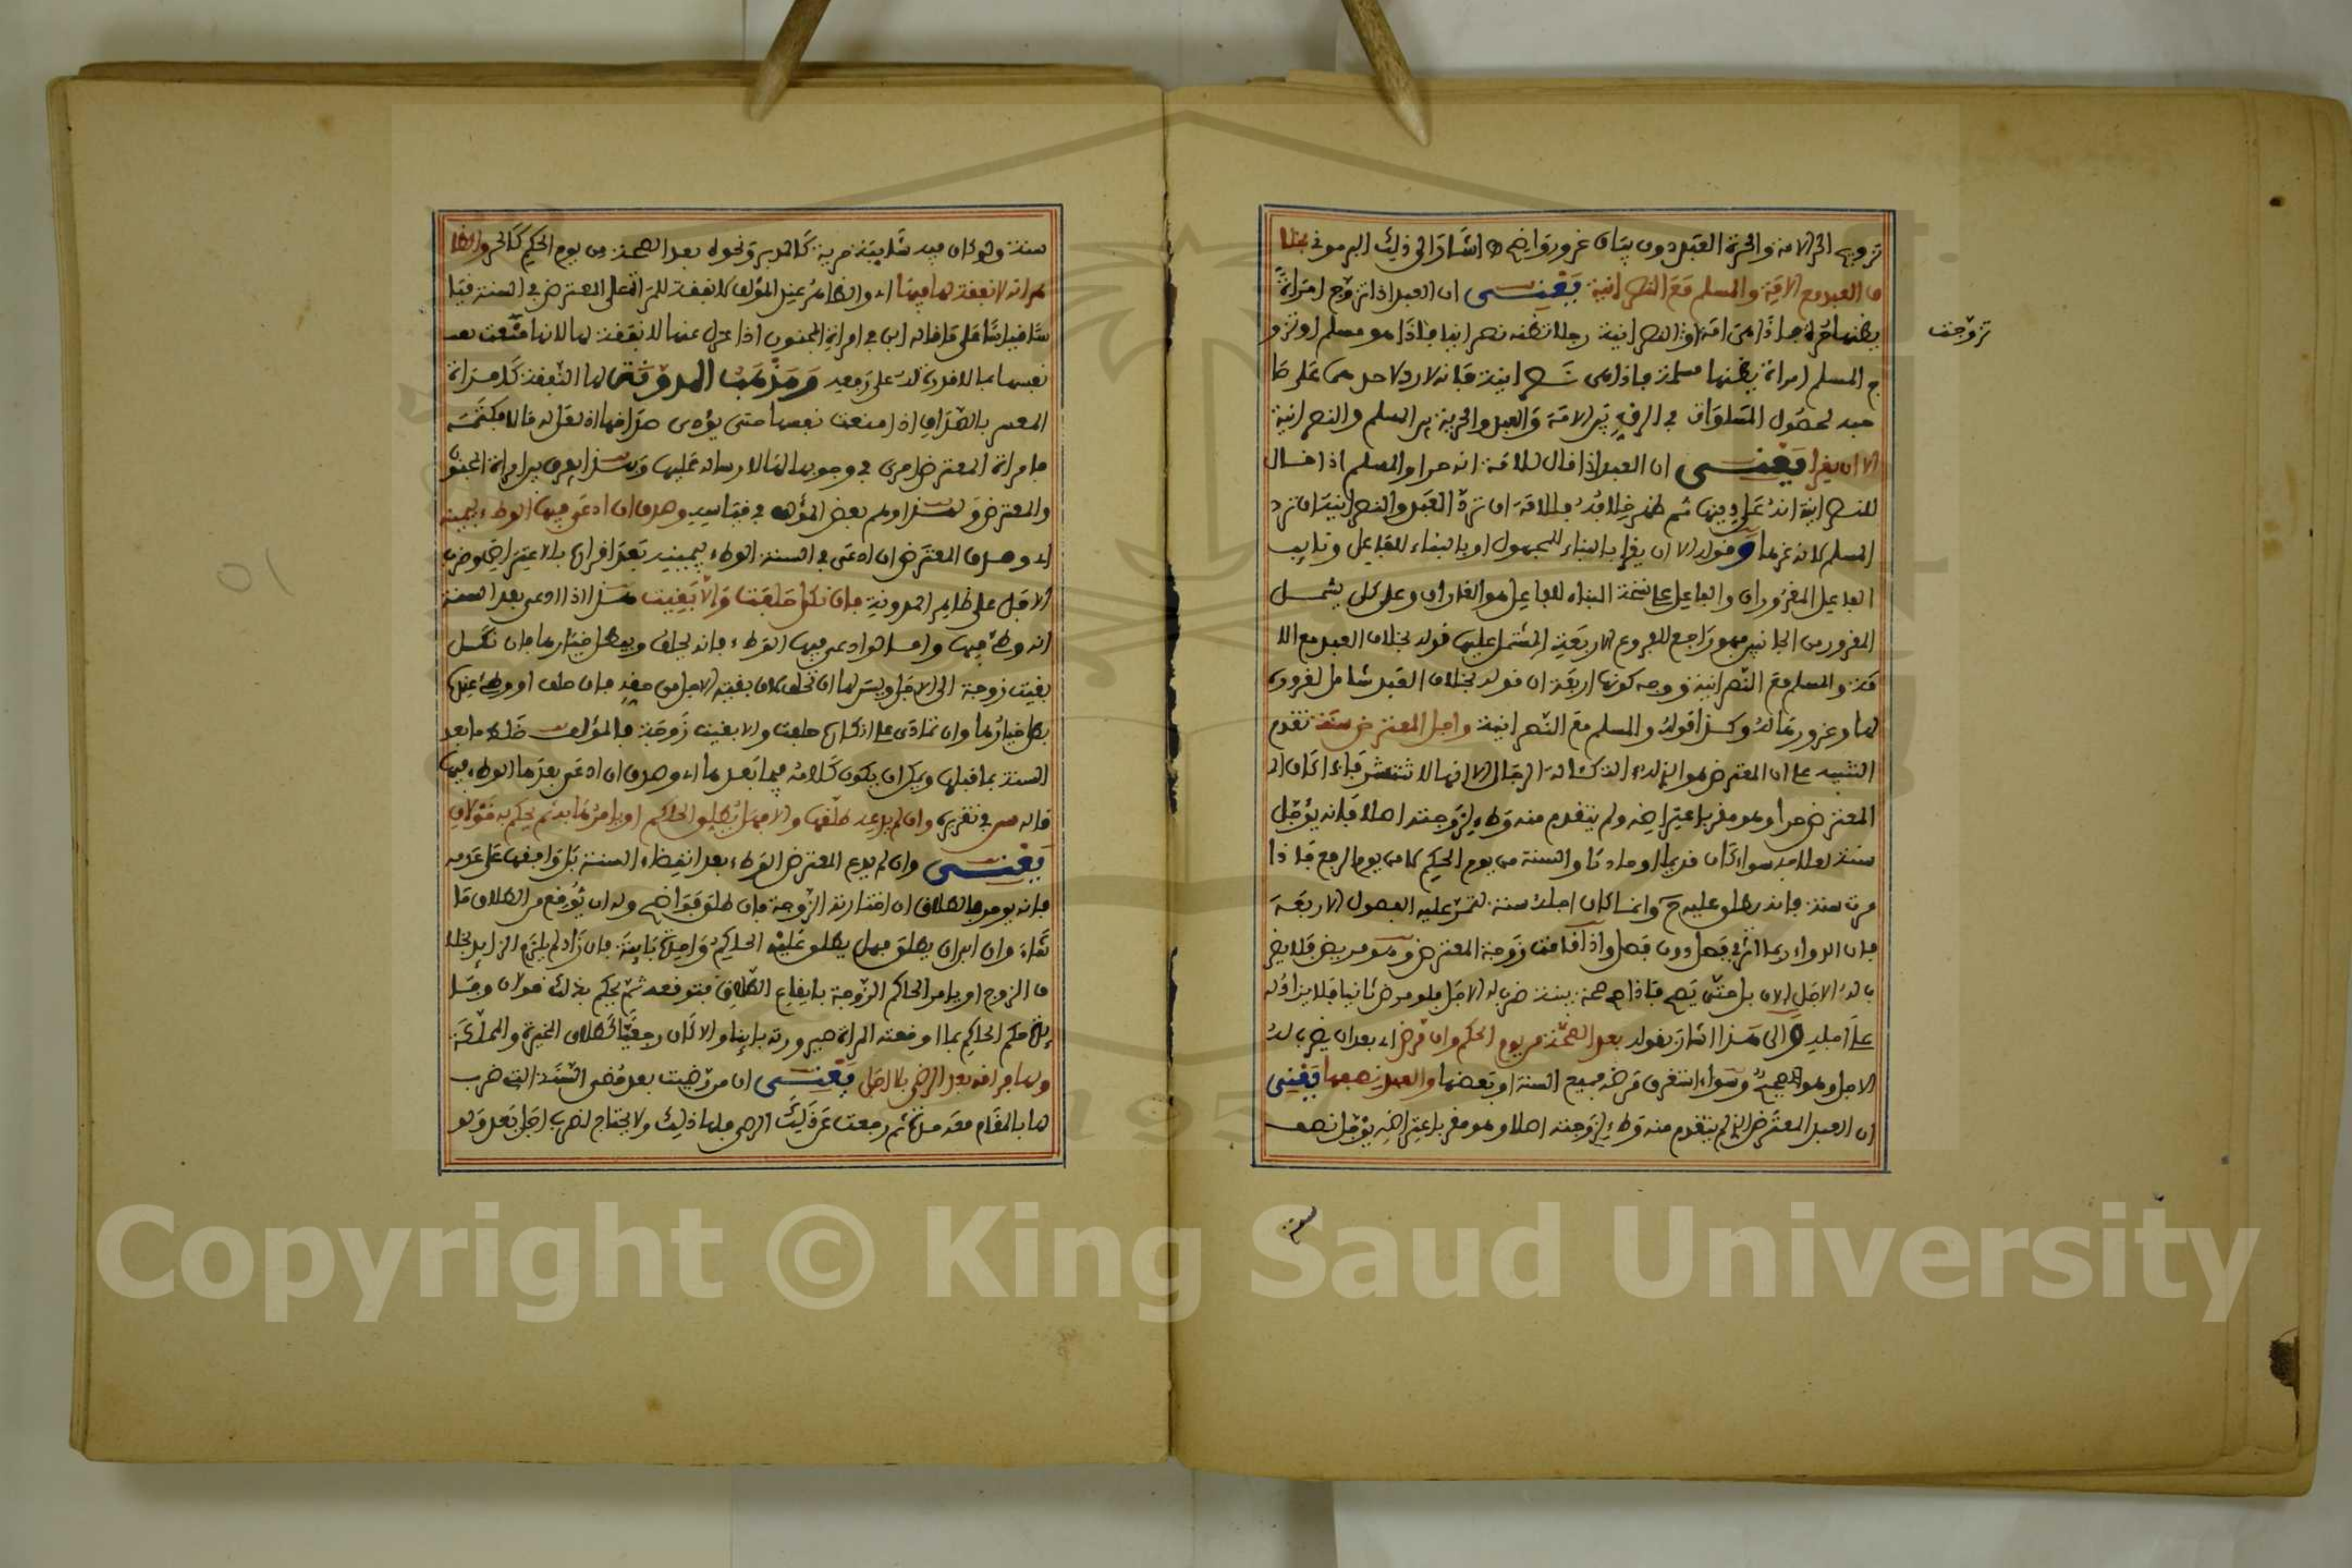 تزويج الحر الامة والحرة العبد دون بيان غرور واضح اشار الى ذلك البرموني بخلا
ف العبد مع الامة والمسلم مع النصرانية يعني ان العبد اذا تزوج امراة
يظنها حرة فاذا هي امة او النصرانية رجلا تظنه نصرانيا فاذا هو مسلم او تزو
تزوجت
ج المسلم امراة يظنها مسلمة فاذا هي نصرانية فانه لا رد لاحدهما على صا
حبه لحصول المساواة في الرق بين الامة والعبد والحرية بين المسلم والنصرانية
الا ان يغرا يعني ان العبد اذا قال للامة انه حر او المسلم اذا قال
للنصرانية انه على دينها ثم ظهر خلافه فللامة ان ترد العبد والنصرانية ان ترد
المسلم لانه غرها وقوله الا ان يغرا بالبناء للمجهول او بالبناء للفاعل ونايب
الفاعل المغروران والفاعل على نسخة البناء للفاعل هو الغاران وعلى كل يشمل
المغرور من الجانبين فهو راجع للفروع الاربعة المشتمل عليها قوله بخلاف العبد مع الا
مة والمسلم مع النصرانية ووجه كونها اربعة ان قوله بخلاف العبد شامل لغروره
لها وغرورها له وكذا قوله والمسلم مع النصرانية واجل المعترض سنة تقدم
التنبيه على ان المعترض هو الذي له الة كالة الرجال الا انها لا تنتشر فاذا كان ا
المعترض حرا وهو مقر باعتراضه ولم يتقدم منه وطء لزوجته اصلا فانه يؤجل
سنة لعلاجه سواء كان قديما او حادثا والسنة من يوم الحكم لا من يوم الرفع فاذا
مرت سنة فانه يطلق عليه ح وانما كان اجله سنة لتمر عليه الفصول الاربعة
فان الدواء ربما اثر في فصل دون فصل واذا قامت زوجة المعترض وهو مريض فلا يضر
ب له الاجل الان بل حتى يصح فاذا صح صحة بينة ضرب له الاجل فلو مرض ثانيا فلا يزاد له
على اجله والى هذا اشار بقوله بعد الصحة من يوم الحكم وان مرض اي بعد ان يضرب له
الاجل وهو صحيح وسواء استغرق مرضه جميع السنة او بعضها والعبد نصفها يعني
ان العبد المعترض الذي لم يتقدم منه وطء لزوجته اصلا وهو مقر باعتراضه يؤجل نصف
سنة
سنة ولو كان فيه شايبة حرية كالمدبر ونحوه بعد الصحة من يوم الحكم كالحر والظا
هر انه لا نفقة لها فيها اي والظاهر عند المؤلف لا نفقة للمراة على المعترض في السنة قيا
سا قياسا على ما قاله ابن في امراة المجنون اذا عزل عنها لا نفقة لها لانها منعت
نفسها بما لا قدرة له على دفعه ومذهب المدونة لها النفقة كامراة
المعسر بالصداق اذا منعت نفسها حتى يؤدي صداقها اذ لعل له مالا فكتمه
فامراة المعترض احرى في وجوبها لها لارساله عليها وهذا يفرق بين امراة المجنون
والمعترض ولهذا وهم بعض المؤلف في قياسه وصدق ان ادعى فيها الوطء بيمينه
اي وصدق المعترض ان ادعى في السنة الوطء بيمينه بعد اقراره بالاعتراض وضرب
الاجل على ظاهر المدونة فان نكل حلفت والا بقيت هذا اذا ادعى بعد السنة
انه وطئ فيها واما لو ادعى فيها الوطء فانه يحلف ويبطل خيارها فان نكل
بقيت زوجة الى الاجل وليس لها ان تحلف لان بقية الاجل من حقه فان حلف او وطئ عندها
بطل خيارها وان تمادى على انكاره حلفت والا بقيت زوجة فالمؤلف خلط ما بعد
السنة بما قبلها ويمكن ان يكون كلامه فيما بعدها اي وصدق ان ادعى بعدها الوطء فيها
قاله في تقريره وان لم يدعه طلقها والا فهل يطلق الحاكم او يامرها به ثم يحكم به قولان
يعني وان لم يدع المعترض الوطء بعد انقضاء السنة بل وافقها على عدمه
فانه يومر بالطلاق ان اختارته الزوجة فان طلق فواضح وله ان يوقع من الطلاق ما
شاء وان ابى ان يطلق فهل يطلق عليه الحاكم واحدة باينة فان زاد لم يلزم الزايد بخلا
ف الزوج او يامر الحاكم الزوجة بايقاع الطلاق فتوقعه ثم يحكم بذلك قولان
حكم الحاكم بما اوقعته المراة صيرورته باينا والا كان رجعيا كطلاق المخيرة والمملكة
ولها فراقه بعد الرضى بلا اجل يعني ان من رضيت بعد مضي السنة التي ضرب
لها بالمقام معه مدة ثم رجعت عن ذلك الرضى فلها ذلك ولا يحتاج لضرب اجل بعد ولو
Copyright © King Saud University
1957